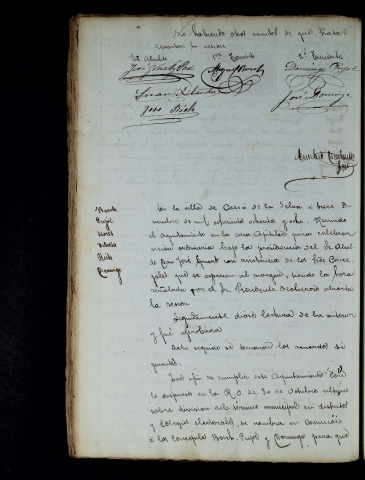 No habiendo otros asuntos de que tratar
se levantó la sesion
El Alcalde
1er Teniente
2º Teniente
Domingo Pujol
Miguel Bosch
José Domingo
José Rich
Bosch
Pujol
Rich
Domingo
En la villa de Cassá de la Selva a trece
mil ochocientos ochenta y ocho. Reunido
el Ayuntamiento en la casa Capitular para celebrar
sesion ordinaria bajo la presidencia del Sr Alcal
de Don José con asistencia de los Sres Conce
jales que se expresan al margen, siendo la hora
señalada por el Sr Presidente declaróse abierta
la sesion
Seguidamente dióse lectura de la anterior
y fué aprobada
Acto seguido se tomaron los acuerdos si
guientes.
Que á fin de cumplir este Ayuntamiento con
lo dispuesto en la R.O. de 30 de Octubre último
sobre division del término municipal en distritos
y Colegios electorales, se nombra en comision
á los Concejales Bosch, Pujol y Domingo para que